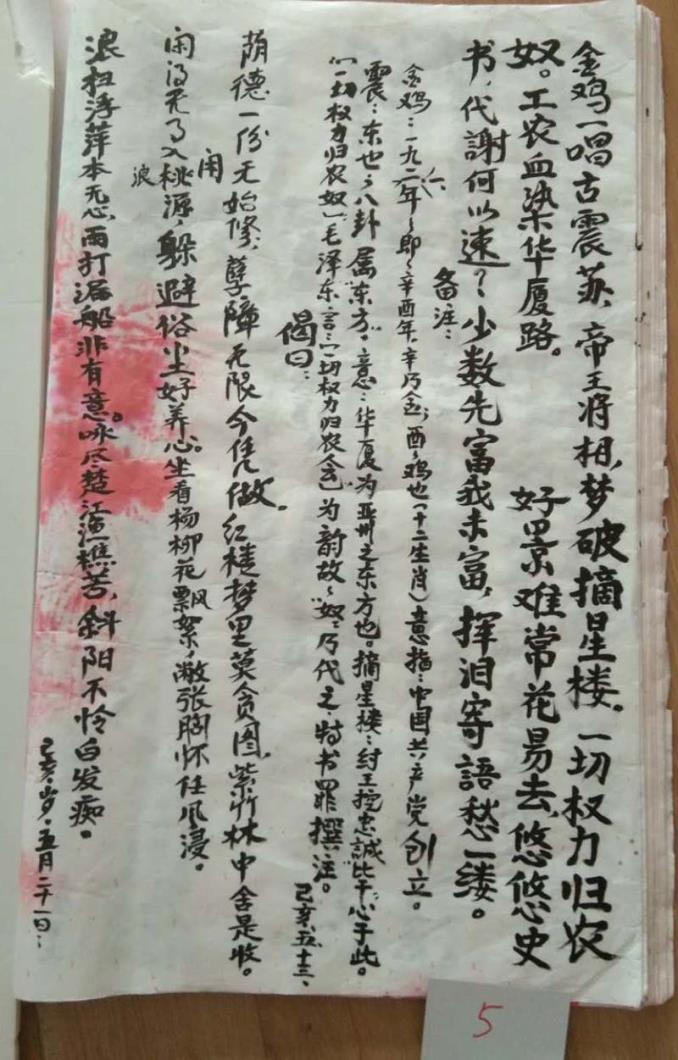 金鸡一唱古震苏、帝王将相,梦破摘星楼。一切权力归农
奴。工农血染华厦路。 好景难常花易去,悠悠史
书,代謝何以速?少数先富我未富,挥泪寄語愁一缕。
备注:
金鸡:一九二一年即辛酉年,辛乃金;酉鸡也(十二生肖)意指:中国共产党创立。
震:东也,八卦属东方。意:华夏为亚州之东方也。摘星楼:纣王挖忠誠比干心于此。
“一切权力归农奴”毛泽东言:“一切权力归农会”为韵故“奴”乃代之、特书罪撰注。
己亥、五、十三、
偈曰:
荫德一份无始修,孽障无限今凭做。红楼梦里莫贪图,紫竹林中舍是收。
闲
闲得无了入桃源,躲避俗尘好养心。坐看杨柳花飘絮,敞张胸怀任风浸。
浪
浪狂浮萍本无心,雨打漏船非有意。咏尽楚江渔樵苦,斜阳不怜白发痴。
己亥岁、五月二十一日:
5